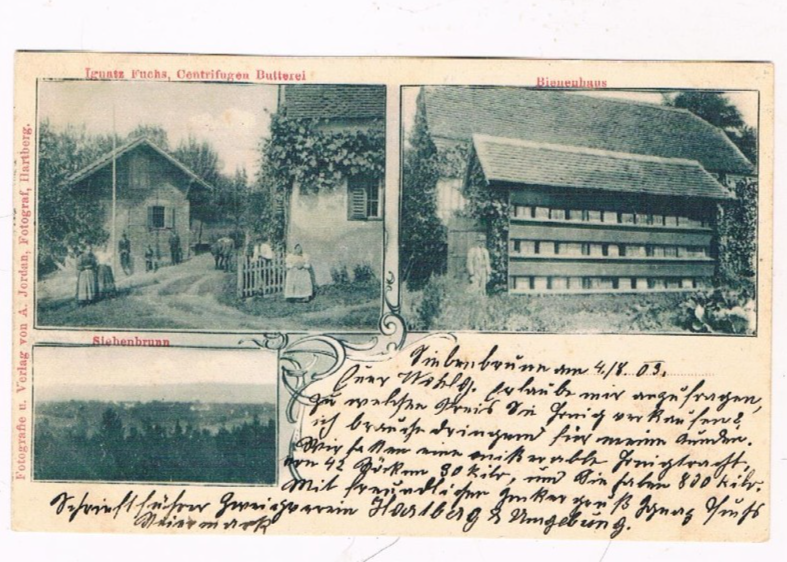 Ignatz Fuchs, Centrifugen Butterei
Bienenhaus
Siebenbrunn
Fotografie u. Verlag von A. Jordan, Fotograf, Hartberg.
Siebenbrunn am 4./8. 03.
Euer Wohlg. Erlaube mir anzufragen,
zu welchen Preis Sie Honig verkaufen?
ich brauche dringend für meine Kunden.
Wir hatten eine mißerable Honigtracht.
von 42 Stöcken 80 kilo, und Sie haben 800 kilo.
Mit freundlichen Imkergruß Ignaz Fuchs
Schriftführer Zweigverein Hartberg & Umgebung.
Steiermark